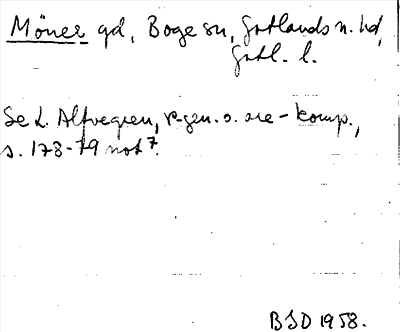 Möner gd, Boge sn, Gotlands n. hd,
Gotl. l.
Se L. Alfvegren, r-gen. o. are-komp.,
s. 178-79 not 7.
BSD 1958.